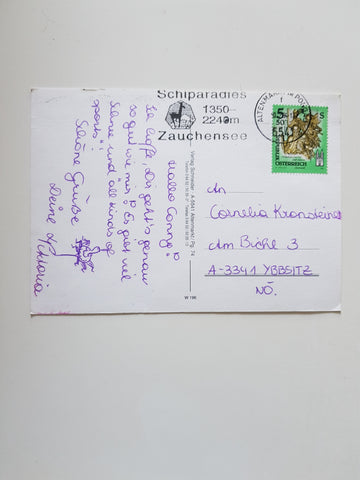 Schiparadies
1350-
2240m
Zauchensee
ALTENMARKT IM PON
5541
5 S
ÖSTERREICH
Hallo Conny!
Ich hoffe, dir geht's genau
so gut wie mir! Es gibt viel
Schnee und "all kinds of
sports"!
Schöne Grüße
Deine Viktoria
Verlag Schnaider A-5541 Altenmarkt / Pg. 74
W 196
An
Cornelia Kronsteiner
Am Bichl 3
A-3341 YBBSITZ
NÖ.